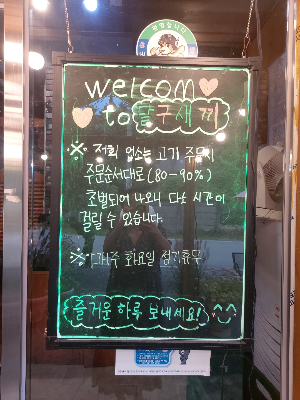 welcom
to 탈구새끼
※ 저희 업소는 고기 주문시
주문순서대로 (80-90%)
초벌되어 나오니 다소 시간이
걸릴 수 있습니다.
※ 매주 화요일 정기휴무
즐거운 하루 보내세요!